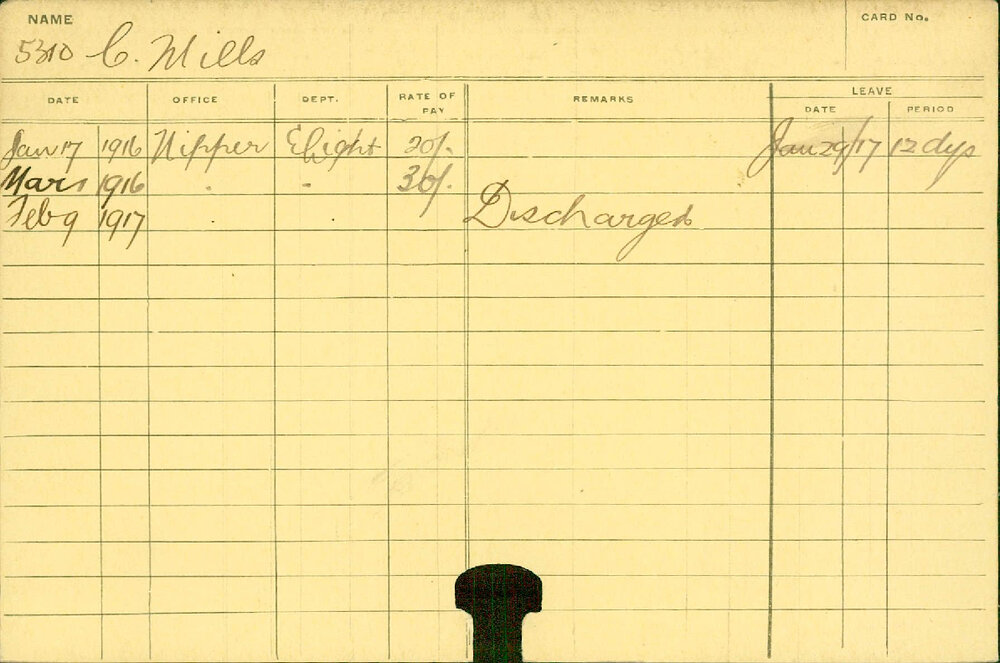 NAME
CARD No.
5310 C. Mills
DATE OFFICE DEPT. RATE OF PAY REMARKS LEAVE
DATE PERIOD
Jan 17 1916 Nipper Elight 20/- Jan 29/17 12 dys
Mar 1916 " " 30/-
Feb 9 1917 " " Discharged